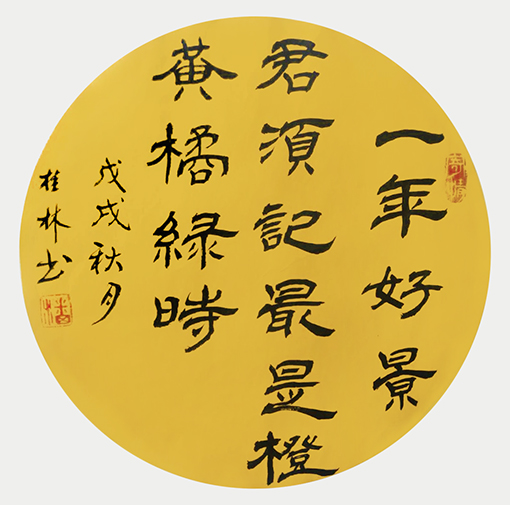 一年好景
君須記最是橙
黃橘綠時
戊戌秋月
桂林书